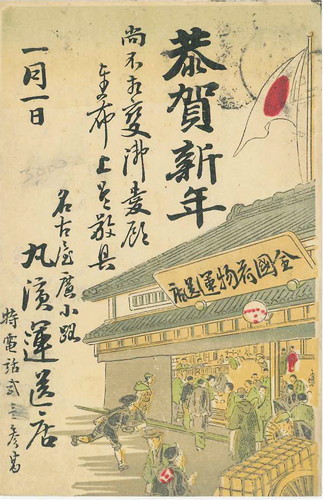 恭賀新年
尚不相變御愛顧
希上候敬具
一月一日
名古屋廣小路
丸濱運送店
特電話 番
全國荷物運送店
3000